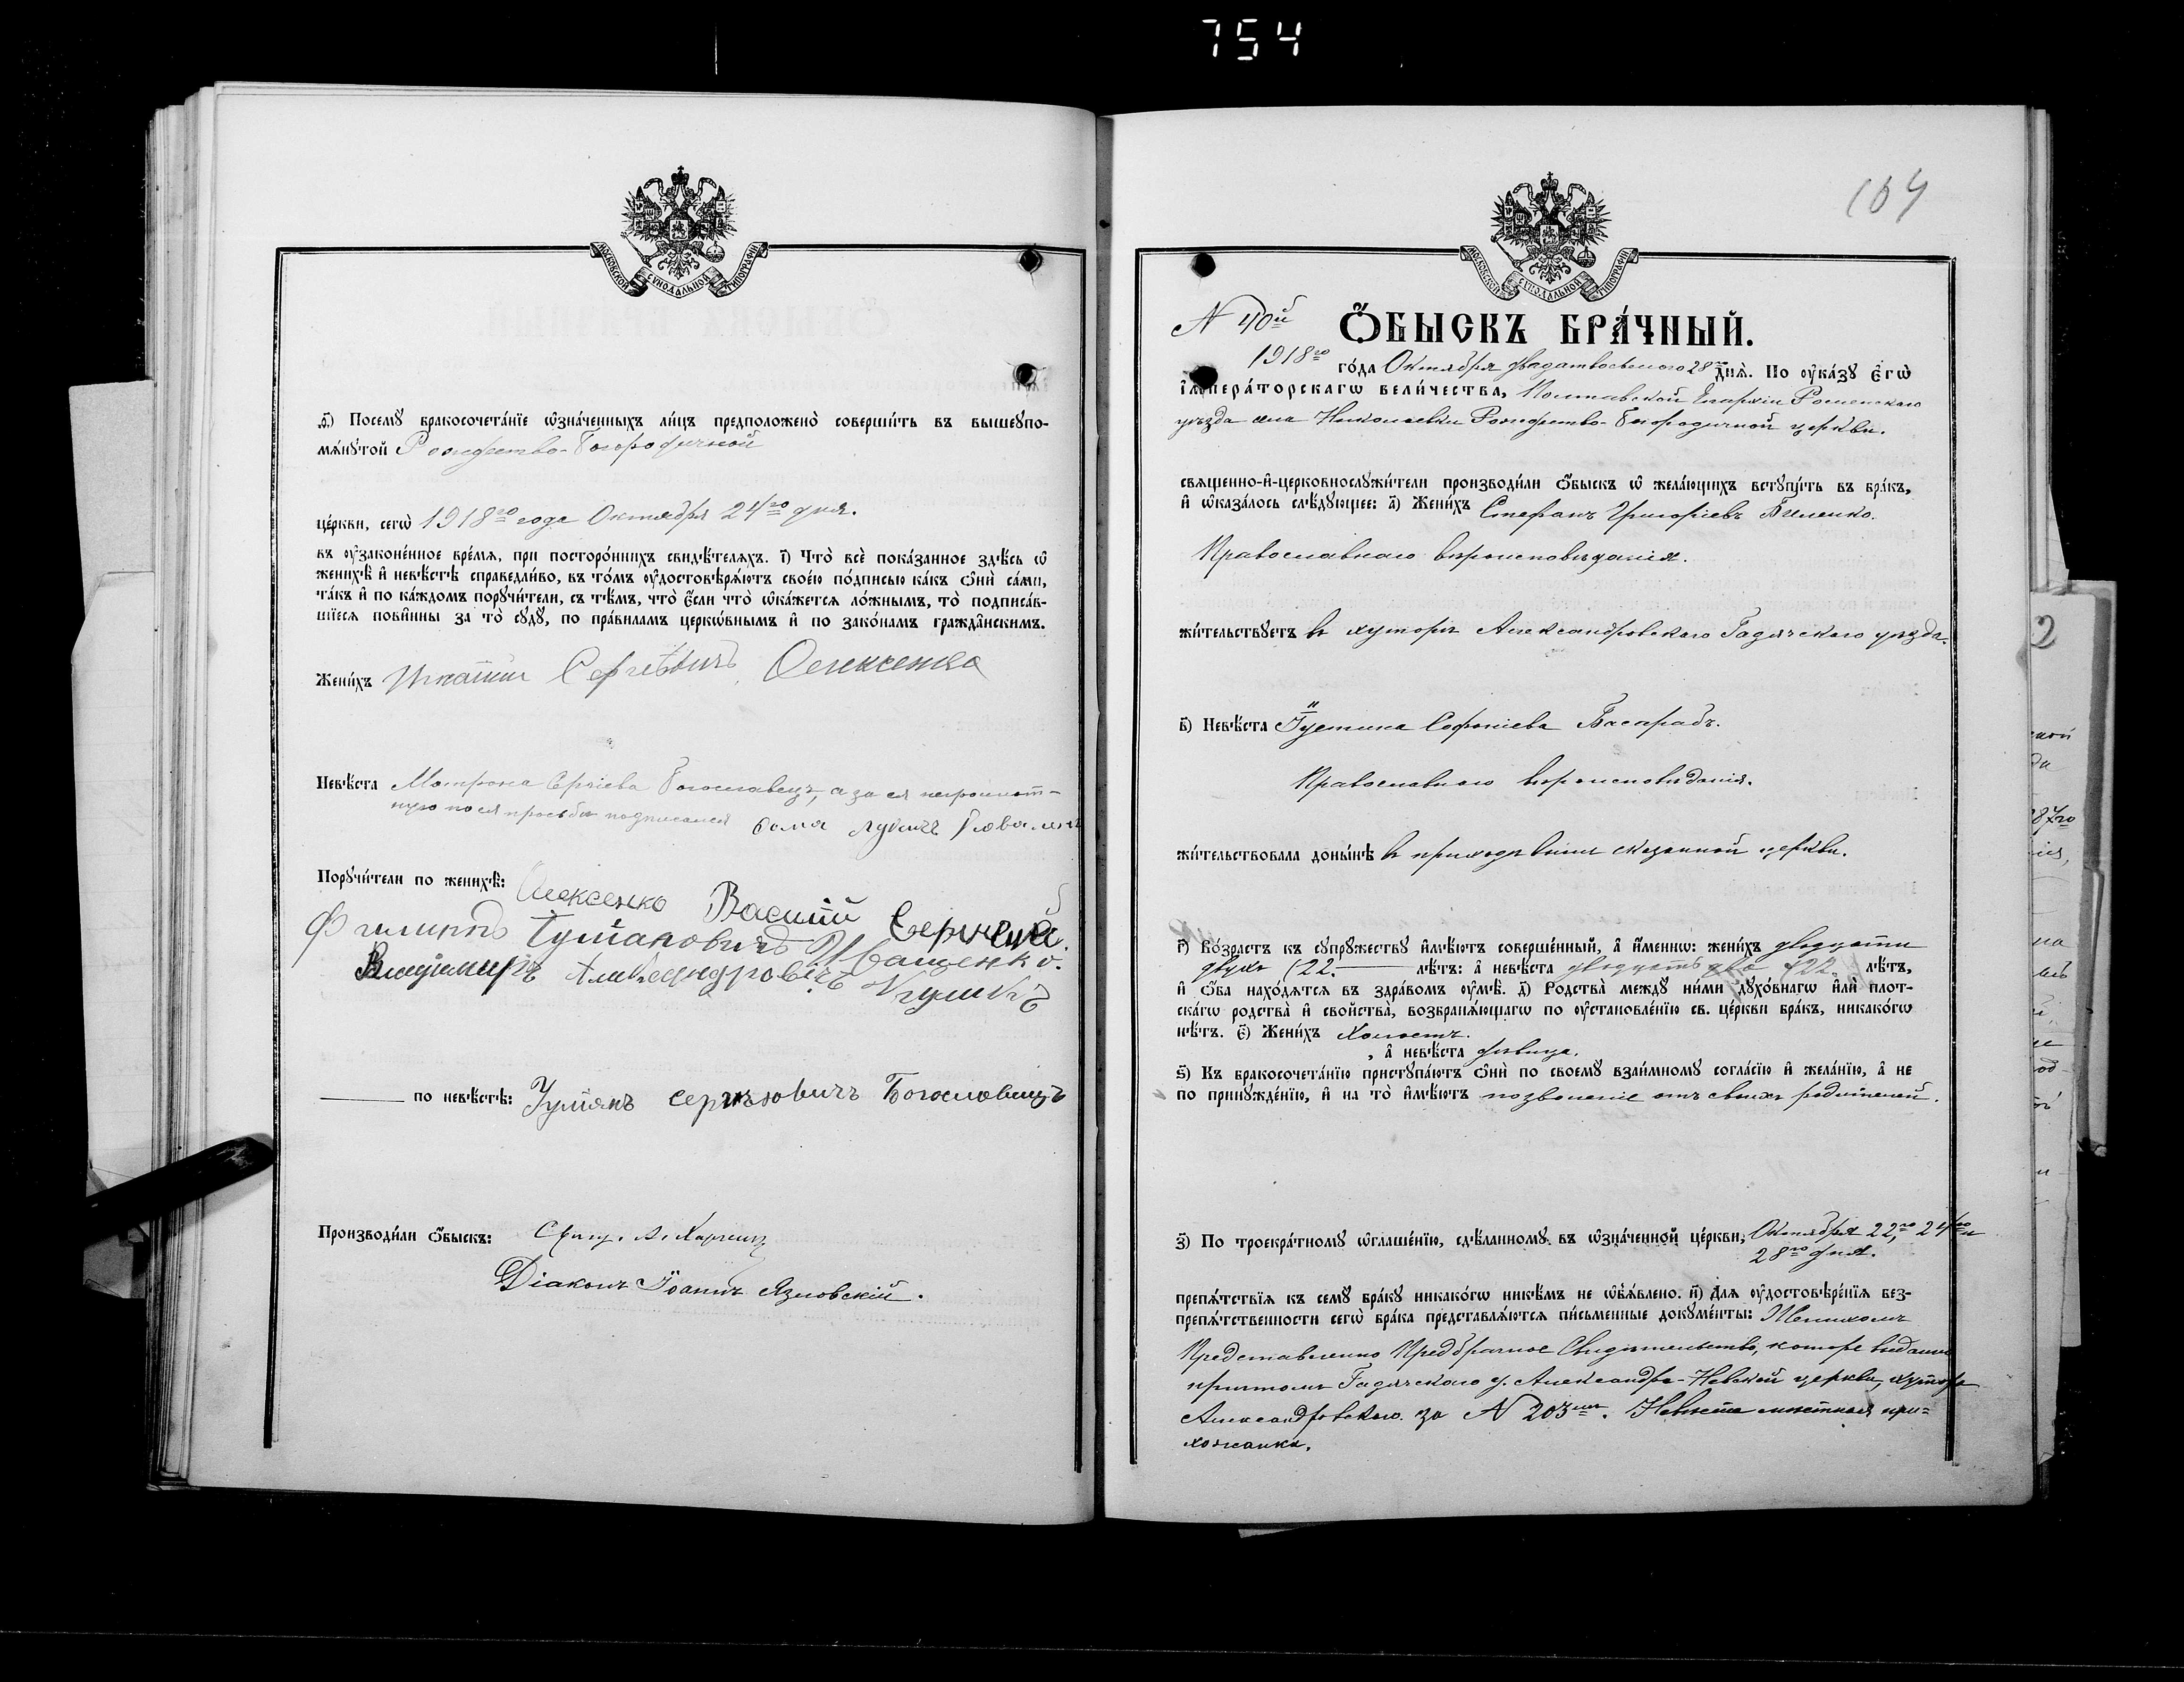 754
МОСКОВСКОЙ СѴНОДАЛЬНОЙ ТИПОГРАФІИ
ѳ҃) Посемꙋ̀ бракосочета́нїе ѡ҆зна́ченныхъ ли́цъ предположено̀ соверши́ть въ вышеꙋпо-
мѧ́нꙋтой Рождество-Богородичной
це́ркви, сегѡ̀ 1918го года Октября 24го дня.
въ ᲂу҆законе́нное вре́мѧ, при посторо́ннихъ свидѣ́телѧхъ. і҃) Что̀ всѐ пока́занное здѣ́сь ѡ҆
женихѣ̀ и҆ невѣ́стѣ справедли́во, въ то́мъ ᲂу҆достовѣрѧ́ютъ свое́ю по́дписью ка́къ ѻ҆нѝ са́ми,
та́къ и҆ по ка́ждомъ порꙋчи́тели, съ тѣ́мъ, что̀ є҆́сли что̀ ѡ҆ка́жетсѧ ло́жнымъ, то̀ подписа́в-
шїесѧ пови́нны за то̀ сꙋдꙋ̀, по пра́виламъ церкѡ́внымъ и҆ по зако́намъ гражда̑нскимъ.
Жени́хъ Игнатий Сергѣевичъ Олексенко
Невѣ́ста Матрона Сергіева Богославецъ, а за ея неграмот-
ную по ея просьбѣ подписался Фома Лукичъ
Порꙋчи́тели по женихѣ̀: Олексенко Василій
Филиппъ Иващенко.
Владимиръ Александровичъ
по невѣ́стѣ: Сергѣевичъ Богославецъ
Производи́ли ѻ҆́быскъ: Свящ. А.
Діаконъ Іоаннъ Язловскій.
104
МОСКОВСКОЙ СѴНОДАЛЬНОЙ ТИПОГРАФІИ
N 40й
Ѻ҆́БЫСКЪ БРА́ЧНЫЙ.
1918го го́да Октября двадцатвосьмого 28го днѧ̀. По ᲂу҆ка́зꙋ є҆гѡ̀
і҆мпера́торскагѡ вели́чества, Полтавской Епархіи Роменского
уѣзда села Николаевки Рождество-Богородичной церкви.
свѧщенно-и҆-церковнослꙋжи́тели производи́ли ѻ҆́быскъ ѡ҆ жела́ющихъ встꙋпи́ть въ бра́къ,
и҆ ѡ҆каза́лось слѣ́дꙋющее: а҃) Жени́хъ Стефанъ Григоріевъ Биленко.
Православнаго вѣроисповѣданія.
жи́тельствꙋетъ въ хуторѣ Александровскаго Гадячскаго уѣзда.
в҃) Невѣ́ста Іустина Софоніева Басарабъ.
Православного вѣроисповѣданія.
жи́тельствовала доны́нѣ въ приходѣ выше сказанной церкви.
г҃) Во́зрастъ къ сꙋпрꙋ́жествꙋ и҆мѣ́ютъ соверше́нный, а҆ и҆́меннѡ: жени́хъ двадцати
двухъ (22. лѣ́тъ: а҆ невѣ́ста двадцать два (22. лѣ́тъ,
и҆ ѻ҆́ба нахо́дѧтсѧ въ здра́вомъ ᲂу҆мѣ̀. д҃) Родства̀ междꙋ ни́ми дꙋхо́внагѡ и҆лѝ плот-
ска́гѡ родства̀ и҆ сво́йства, возбранѧ́ющагѡ по ᲂу҆становле́нїю св. це́ркви бра́къ, никако́гѡ
нѣ́тъ. є҃) Жени́хъ Холостъ.
, а҆ невѣ́ста дѣвица.
ѕ҃) Къ бракосочета́нїю пристꙋпа́ютъ ѻ҆нѝ по своемꙋ̀ взаи́мномꙋ согла́сїю и҆ жела́нїю, а҆ не
по принꙋжде́нїю, и҆ на то̀ и҆мѣ́ютъ позволеніе отъ своихъ родителей.
з҃) По троекра́тномꙋ ѡ҆глаше́нїю, сдѣ́ланномꙋ въ ѡ҆зна́ченной це́ркви, Октября 22го, 24го и
28го дня.
препѧ́тствїѧ къ семꙋ̀ бра́кꙋ никако́гѡ никѣ́мъ не ѡ҆б̾ѧ́влено. и҃) Длѧ ᲂу҆достовѣре́нїѧ без-
препѧ́тственности сегѡ̀ бра́ка представлѧ́ютсѧ пи́сьменные докꙋме́нты: Женихомъ
Представленно Предбрачное Свидѣтельство, которе выданно
причтомъ Гадячскаго у. Александро-Невской церкви, хутора
Александровскаго за N 203мъ. Невеста мѣстная при=
хожанка.